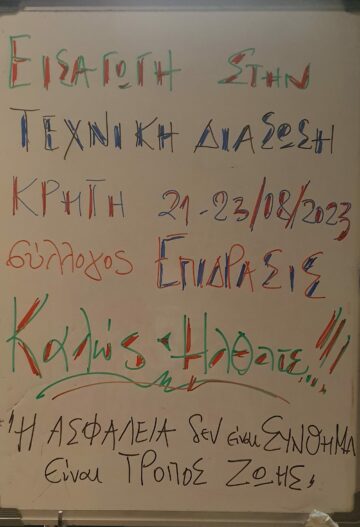 ΕΙΣΑΓΩΓΗ ΣΤΗΝ
ΤΕΧΝΙΚΗ ΔΙΑΣΩΣΗ
ΚΡΗΤΗ 21-23/08/2023
σύλλογος ΕΠΙΔΡΑΣΙΣ
Καλώς Ήλθατε...!!!
"Η ΑΣΦΑΛΕΙΑ δεν είναι ΣΥΝΘΗΜΑ
είναι ΤΡΟΠΟΣ ΖΩΗΣ"